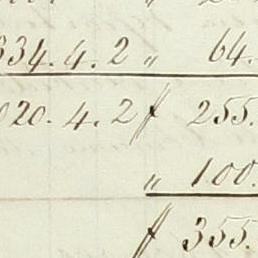 334.4.2 〃 64.
020.4.2 f 255.
〃 100.
f 355.